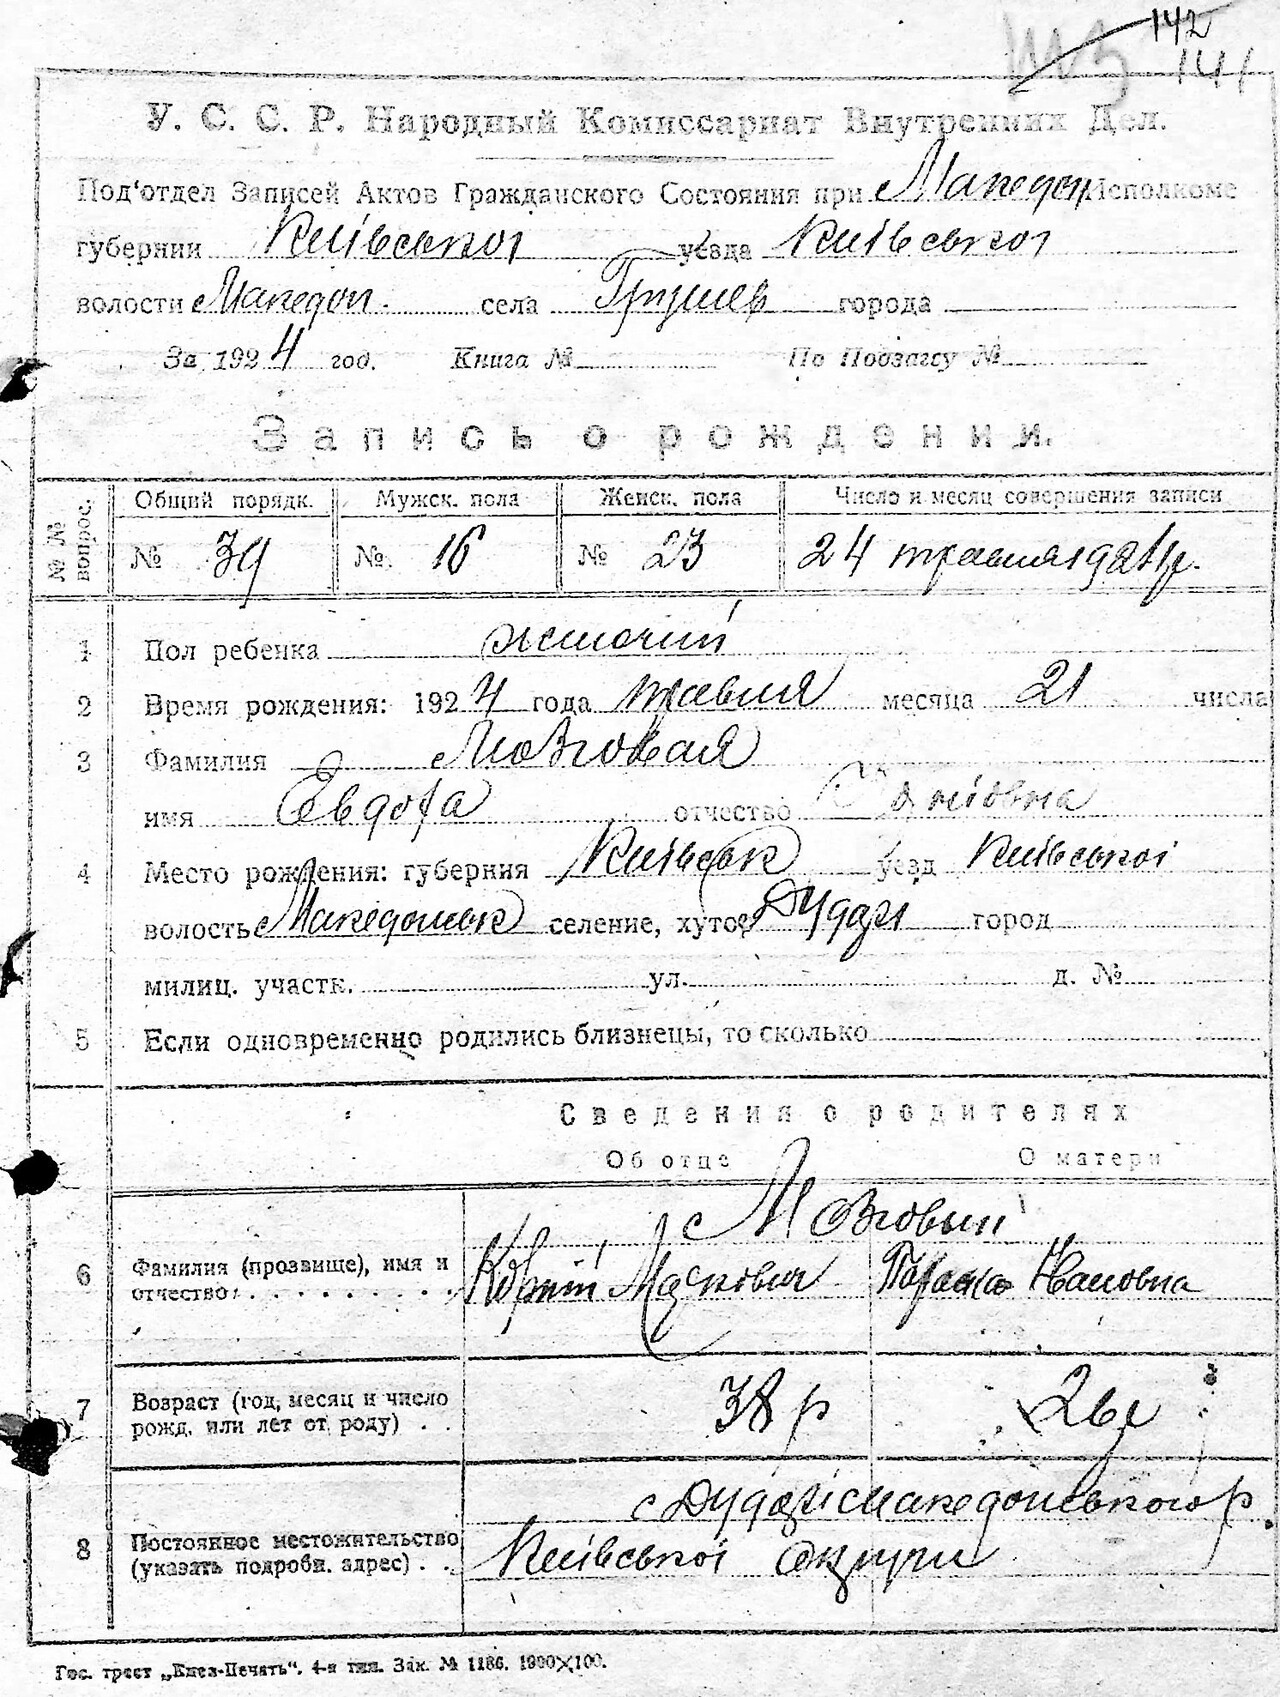 142
141
У. С. С. Р. Народный Комиссариат Внутренних Дел.
Под'отдел Записей Актов Гражданского Состояния при Македон Исполкоме
губернии Київської уезда Київської
волости Македон. села Грушев города
За 1924 год. Книга № По Подзагсу №
Запись о рождении.
№ № вопрос.
Общий порядк. Мужск. пола Женск. пола Число и месяц совершения записи
№ 39 № 16 № 23 24 травня 1924 р.
1 Пол ребенка жіночий
2 Время рождения: 1924 года травня месяца 21 числа
3 Фамилия Мозговая
имя Євдоха отчество
4 Место рождения: губерния Київськ уезд Київської
волость Македонськ селение, хутор Дударі город
милиц. участк. ул. д. №
5 Если одновременно родились близнецы, то сколько
Сведения о родителях
Об отце О матери
Мозговый
6 Фамилия (прозвище), имя и
отчество: Івановна
7 Возраст (год, месяц и число
рожд. или лет от роду) 38 р
с Дударі Македонського р.
8 Постоянное местожительство
(указать подробн. адрес) Київської Округи
Гос. трест „Киев-Печать“. 4-я тип. Зак. № 1186. 1000×100.